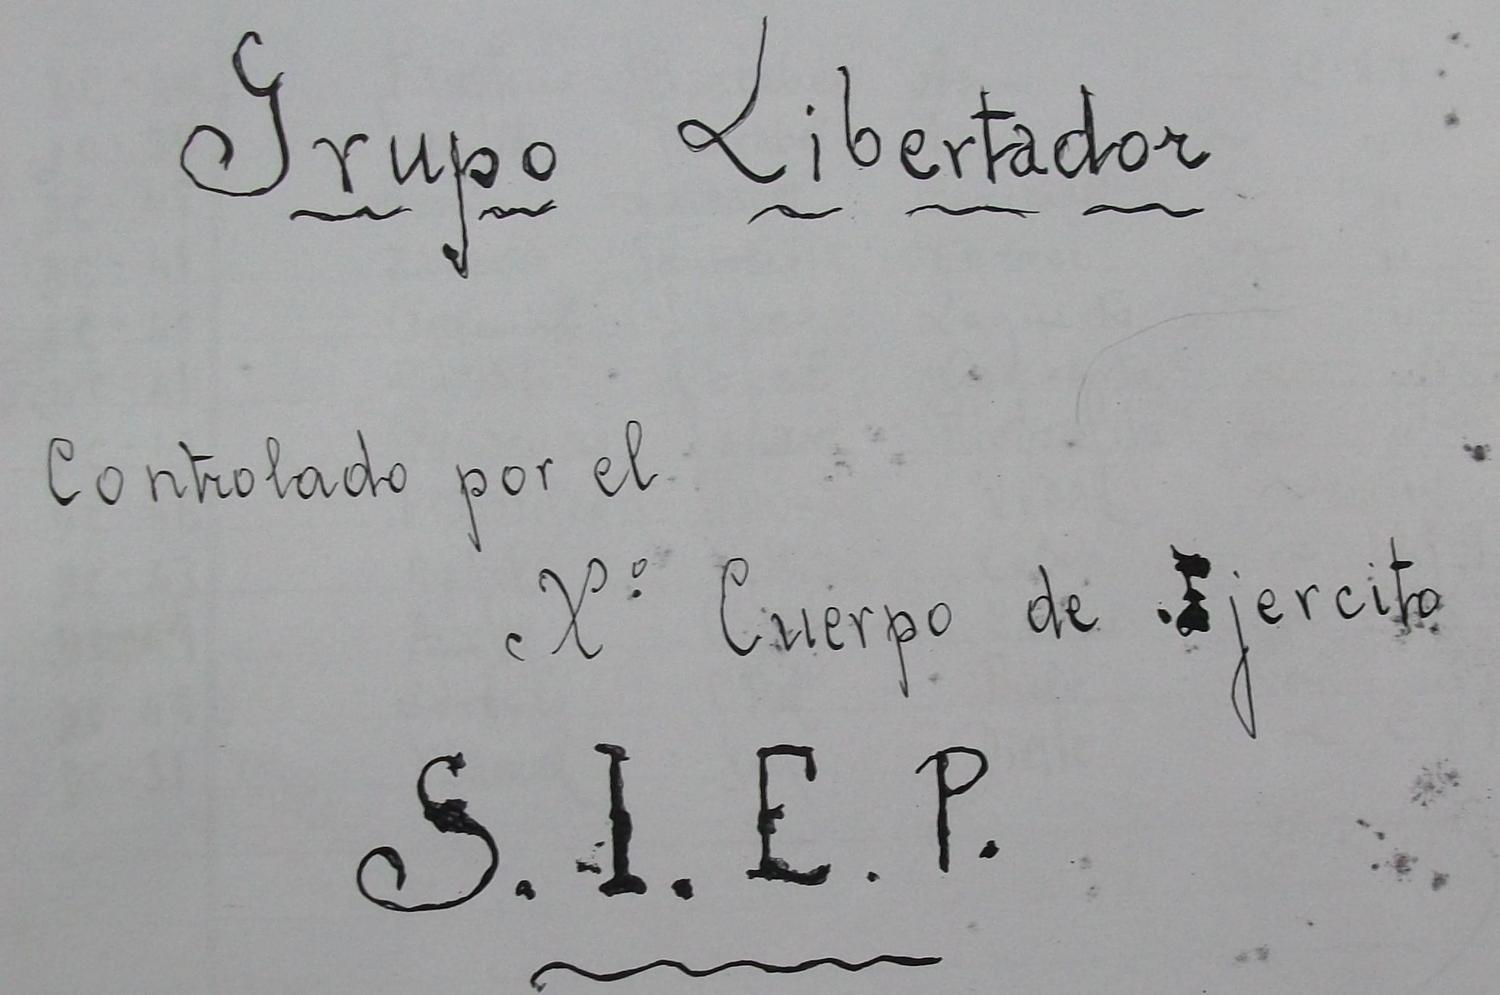 Grupo Libertador
Controlado por el
Xº Cuerpo de Ejercito
S.I.E.P.